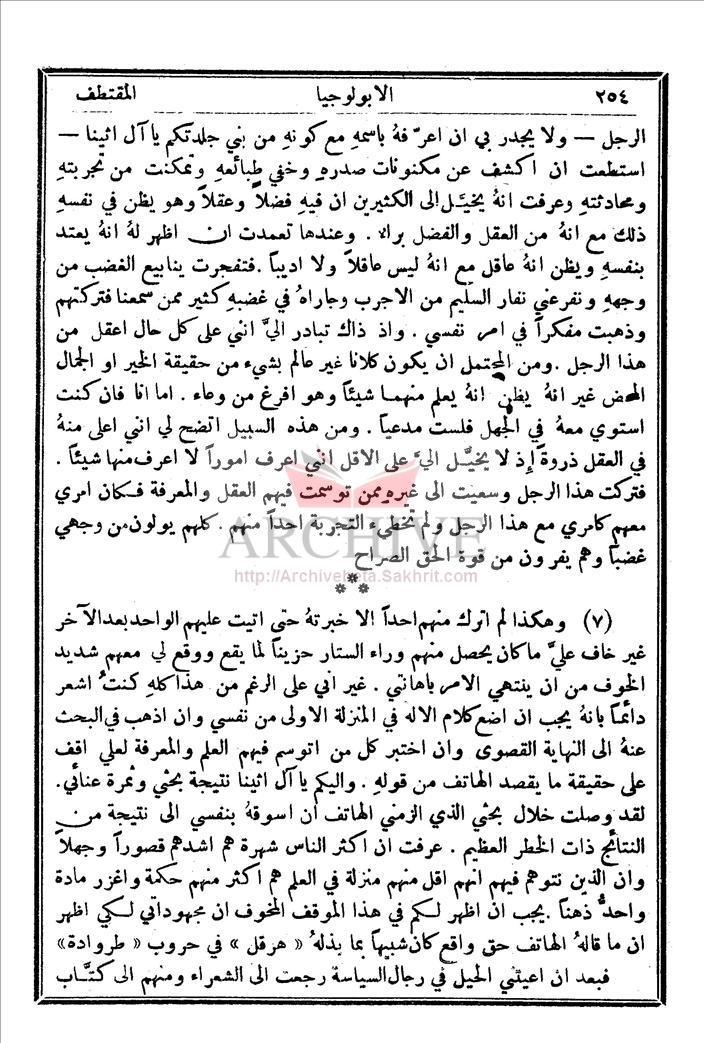 ٢٥٤ الابولوجيا المقتطف
الرجل — ولا يجدر بي ان اعرّفهُ باسمهِ مع كونهِ من بني جلدتكم يا آل اثينا —
استطعت ان اكشف عن مكنونات صدرهِ وخفي طبائعهِ وتمكنت من تجربتهِ
ومحادثتهِ وعرفت انهُ يخيَّل الى الكثيرين ان فيهِ فضلاً وعقلاً وهو يظن في نفسهِ
ذلك مع انهُ من العقل والفضل براء . وعندها تعمدت ان اظهر لهُ انهُ يعتد
بنفسهِ ويظن انهُ عاقل مع انهُ ليس عاقلاً ولا اديباً . فتفجرت ينابيع الغضب من
وجههِ ونفر عني نفار السليم من الاجرب وجاراهُ في غضبهِ كثير ممن سمعنا فتركتهم
وذهبت مفكراً في امر نفسي . واذ ذاك تبادر اليَّ انني على كل حال اعقل من
هذا الرجل . ومن المحتمل ان يكون كلانا غير عالم بشيء من حقيقة الخير او الجمال
المحض غير انهُ يظن انهُ يعلم منهما شيئاً وهو افرغ من وعاء . اما انا فان كنت
استوي معهُ في الجهل فلست مدعياً . ومن هذه السبيل اتضح لي انني اعلى منهُ
في العقل ذروةً إذ لا يخيَّل اليَّ على الاقل انني اعرف اموراً لا اعرف منها شيئاً .
فتركت هذا الرجل وسعيت الى غيره ممن توسمت فيهم العقل والمعرفة فكان امري
معهم كامري مع هذا الرجل ولم تخطىء التجربة احداً منهم . كلهم يولون من وجهي
غضباً وهم يفرون من قوة الحق الصراح
ARCHIVE
http://Archivebeta.Sakhrit.com
***
(٧) وهكذا لم اترك منهم احداً الا خبرتهُ حتى اتيت عليهم الواحد بعد الآخر
غير خاف عليَّ ما كان يحصل منهم وراء الستار حزيناً لما يقع ووقع لي معهم شديد
الخوف من ان ينتهي الامر باهانتي . غير اني على الرغم من هذا كلهِ كنتُ اشعر
دائماً بانهُ يجب ان اضع كلام الاله في المنزلة الاولى من نفسي وان اذهب في البحث
عنهُ الى النهاية القصوى وان اختبر كل من اتوسم فيهم العلم والمعرفة لعلي اقف
على حقيقة ما يقصد الهاتف من قولهِ . واليكم يا آل اثينا نتيجة بحثي وثمرة عنائي .
لقد وصلت خلال بحثي الذي الزمني الهاتف ان اسوقهُ بنفسي الى نتيجة من
النتائج ذات الخطر العظيم . عرفت ان اكثر الناس شهرة هم اشدهم قصوراً وجهلاً
وان الذين نتوهم فيهم انهم اقل منهم منزلة في العلم هم اكثر منهم حكمة واغزر مادة
واحدُّ ذهناً . يجب ان اظهر لكم في هذا الموقف المخوف ان مجهوداتي لكي اظهر
ان ما قالهُ الهاتف حق واقع كان شبيهاً بما بذلهُ « هرقل » في حروب « طروادة»
فبعد ان اعيتني الحيل في رجال السياسة رجعت الى الشعراء ومنهم الى كتَّاب